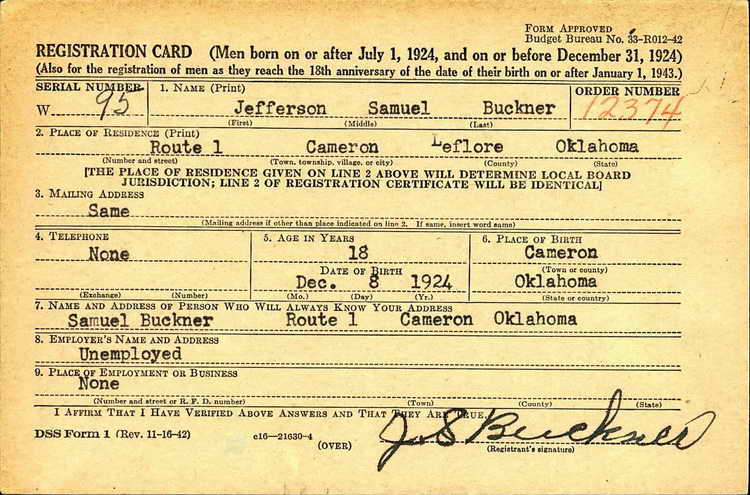 Form Approved
Budget Bureau No. 33-R012-42
REGISTRATION CARD (Men born on or after July 1, 1924, and on or before December 31, 1924)
(Also for the registration of men as they reach the 18th anniversary of the date of their birth on or after January 1, 1943.)
SERIAL NUMBER 1. Name (Print) ORDER NUMBER
W 95 Jefferson Samuel Buckner 12374
(First) (Middle) (Last)
2. Place of Residence (Print)
Route 1 Cameron Leflore Oklahoma
(Number and street) (Town, township, village, or city) (County) (State)
[THE PLACE OF RESIDENCE GIVEN ON LINE 2 ABOVE WILL DETERMINE LOCAL BOARD
JURISDICTION; LINE 2 OF REGISTRATION CERTIFICATE WILL BE IDENTICAL]
3. Mailing Address
Same
(Mailing address if other than place indicated on line 2. If same, insert word same)
4. Telephone 5. Age in Years 6. Place of Birth
None 18 Cameron
Date of Birth (Town or county)
Dec. 8 1924 Oklahoma
(Exchange) (Number) (Mo.) (Day) (Yr.) (State or country)
7. Name and Address of Person Who Will Always Know Your Address
Samuel Buckner Route 1 Cameron Oklahoma
8. Employer's Name and Address
Unemployed
9. Place of Employment or Business
None
(Number and street or R. F. D. number) (Town) (County) (State)
I Affirm That I Have Verified Above Answers and That They Are True.
DSS Form 1 (Rev. 11-16-42) c16—21630-4
(OVER) J S Buckner
(Registrant's signature)